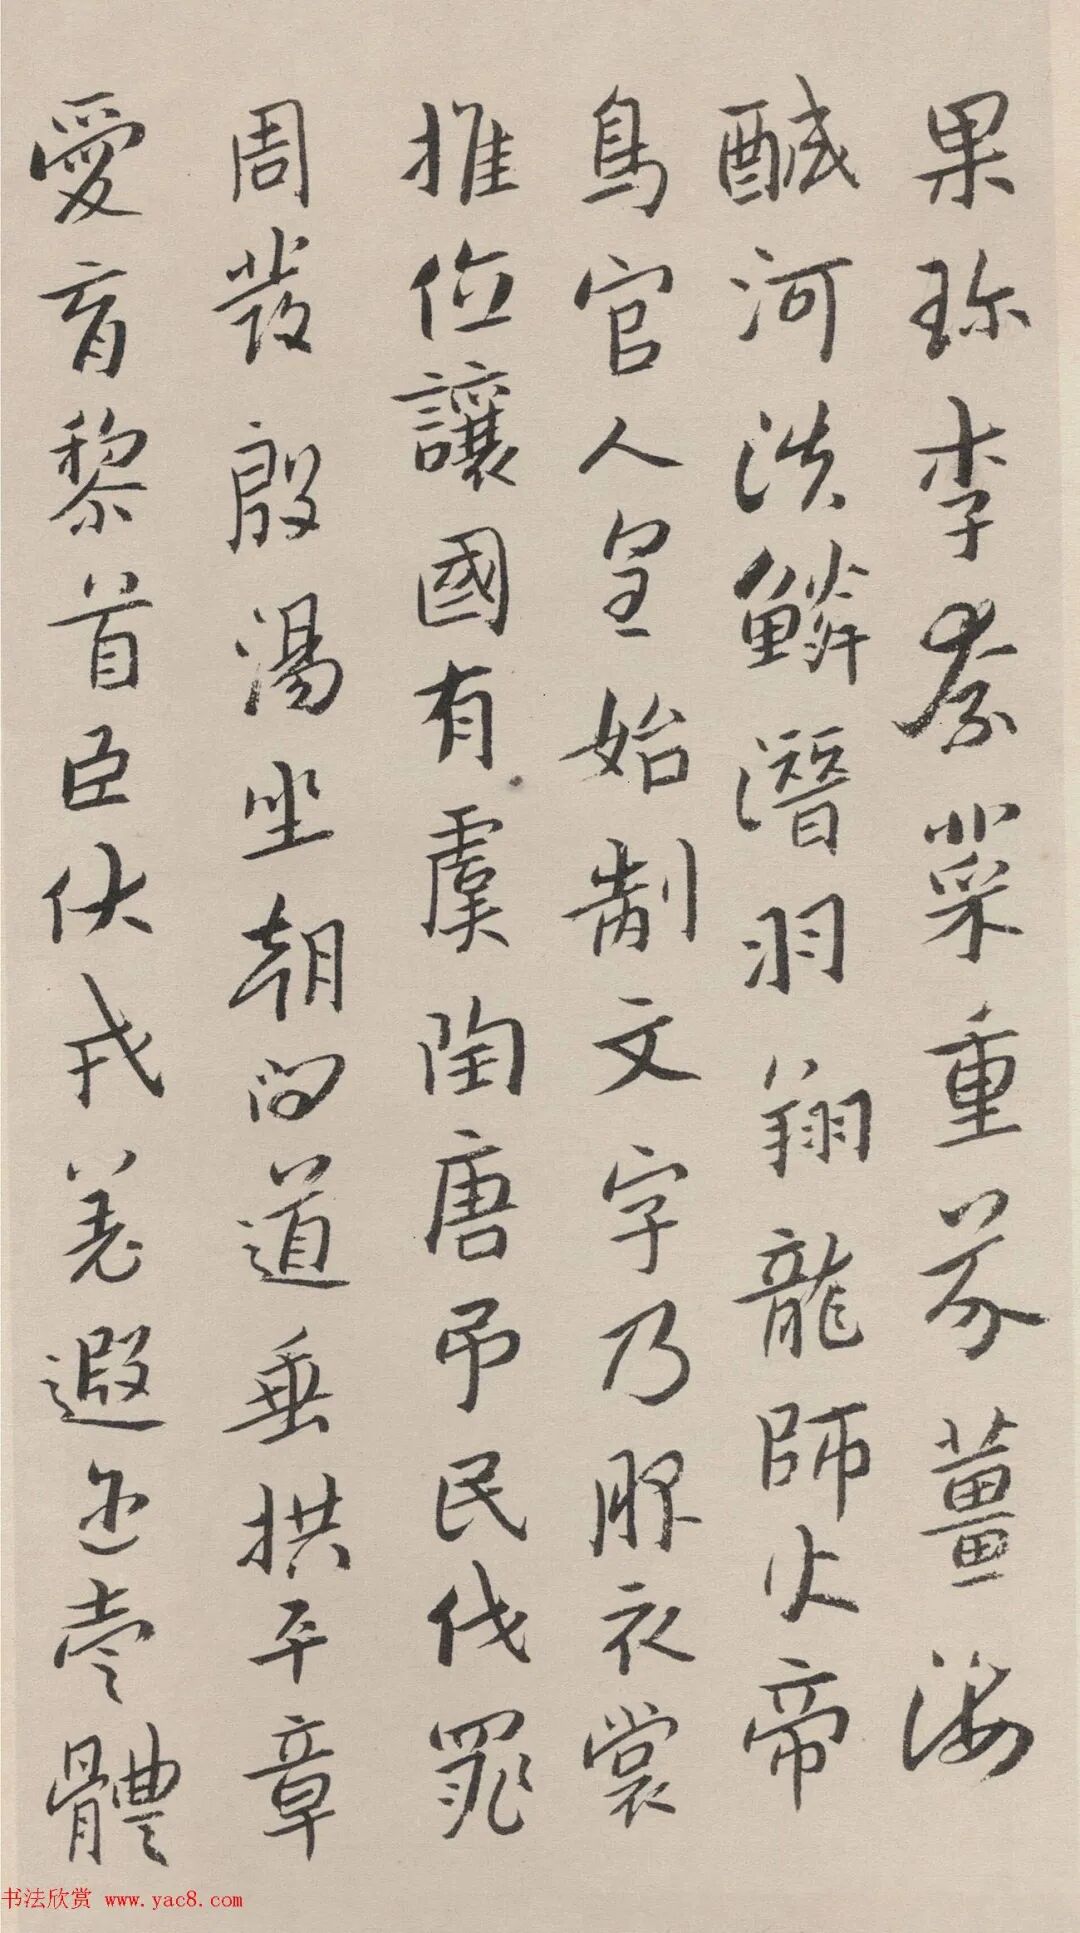 果珍李柰菜重芥薑海
醎河淡鱗潛羽翔龍師火帝
鳥官人皇始制文字乃服衣裳
推位讓國有虞陶唐弔民伐罪
周發殷湯坐朝問道垂拱平章
愛育黎首臣伏戎羌遐迩壹體
书法欣赏 www.yac8.com